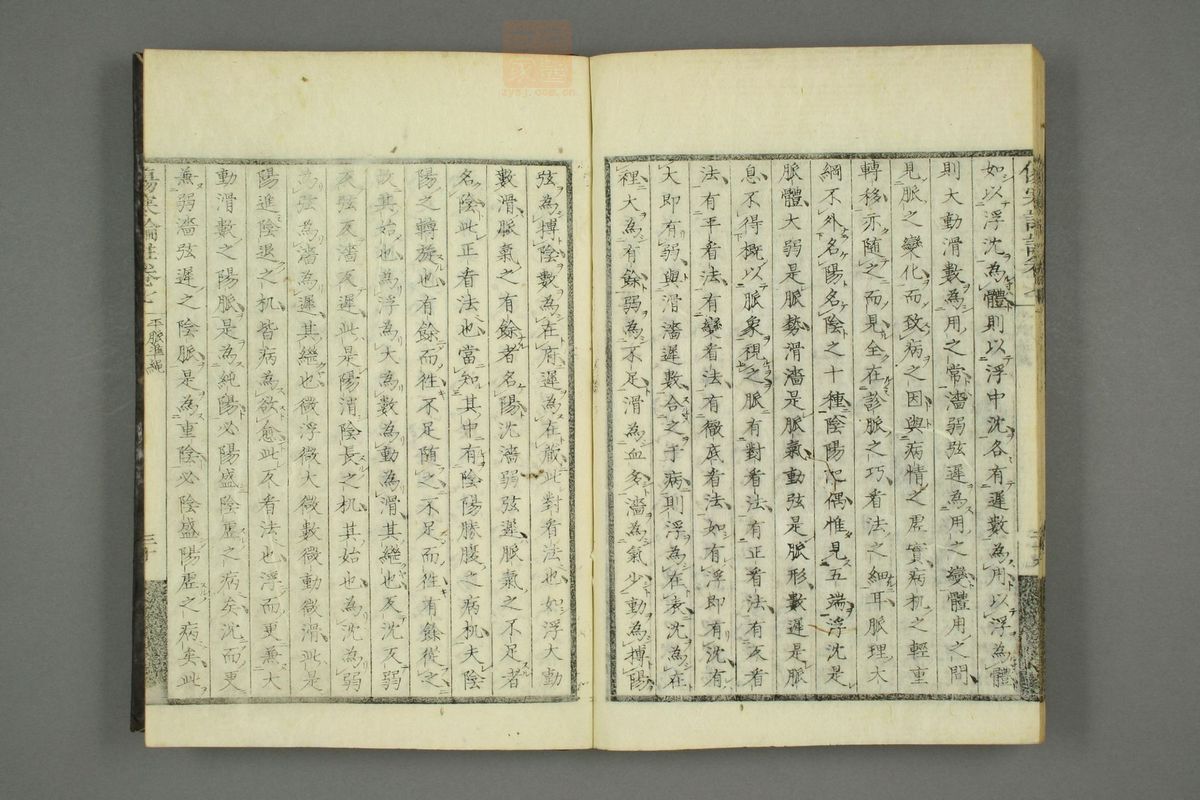 如以浮沈為體則以浮中沈各有遲數為用以浮為體
則大動滑數為用之常濇弱弦遲為用之變體用之間
見脈之變化而致病之因與病情之虛實病机之輕重
轉移亦随之而見全在診脈之巧看法之細耳脈理大
綱不外名陽名陰之十種陰陽配偶惟見五端浮沈是
脈體大弱是脈勢滑濇是脈氣動弦是脈形數遲是脈
息不得概以脈象視之脈有對看法有正看法有反看
法有平看法有變看法有徹底看法如有浮即有沈有
大即有弱與滑濇遲數合之于病則浮為在表沈為在
裡大為有餘弱為不足滑為血多濇為氣少動為搏陽
弦為搏陰數為在府遲為在藏此對看法也如浮大動
數滑脈氣之有餘者名陽沈濇弱弦遲脈氣之不足者
名陰此正看法也當知其中有陰陽勝腹之病机夫陰
陽之轉旋也有餘而徃不足随之不足而徃有餘從之
故其始也為浮為大為數為動為滑其繼也反沈反弱
反弦反濇反遲此是陽消陰長之机其始也為沈為弱
為弦為濇為遲其繼也微浮微大微數微動微滑此是
陽進陰退之机皆病為欲愈此反看法也浮而更兼大
動滑數之陽脈是為純陽必陽盛陰虛之病矣沈而更
兼弱濇弦遲之陰脈是為重陰必陰盛陽虛之病矣此
傷寒論註卷七
平脈準繩
三十